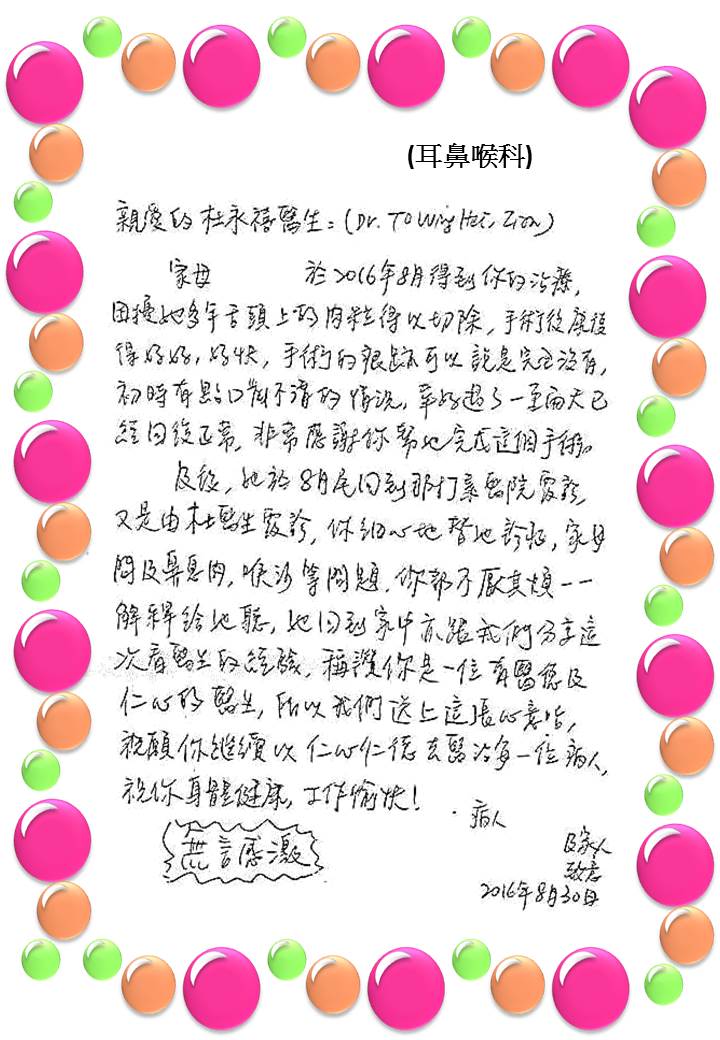 (耳鼻喉科)
親愛的杜永禧醫生：(Dr. TO Wing Hei, Zion)
家母 於2016年8月得到你的治療，
困擾她多年舌頭上的肉粒得以切除，手術後康復
得好好，好快，手術的痕跡可以說是完全沒有，
初時有點口齒不清的情況，幸好過了一至兩天已
經回復正常，非常感謝你幫她完成這個手術。
及後，她於8月尾回到那打素醫院覆診，
又是由杜醫生覆診，你細心地替她診症，家母
問及鼻息肉，喉沙等問題，你都不厭其煩一一
解釋給她聽，她回到家中亦跟我們分享這
次看醫生的經驗，稱讚你是一位有醫德及
仁心的醫生，所以我們送上這張心意咭，
祝願你繼續以仁心仁德去醫治每一位病人，
祝你身體健康，工作愉快！
病人
及家人
致意
無言感激
2016年8月30日